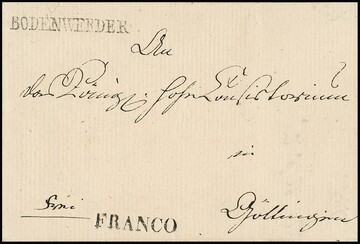 BODENWERDER
An
das Königl: hohe Consistorium
in
Göttingen
frei
FRANCO